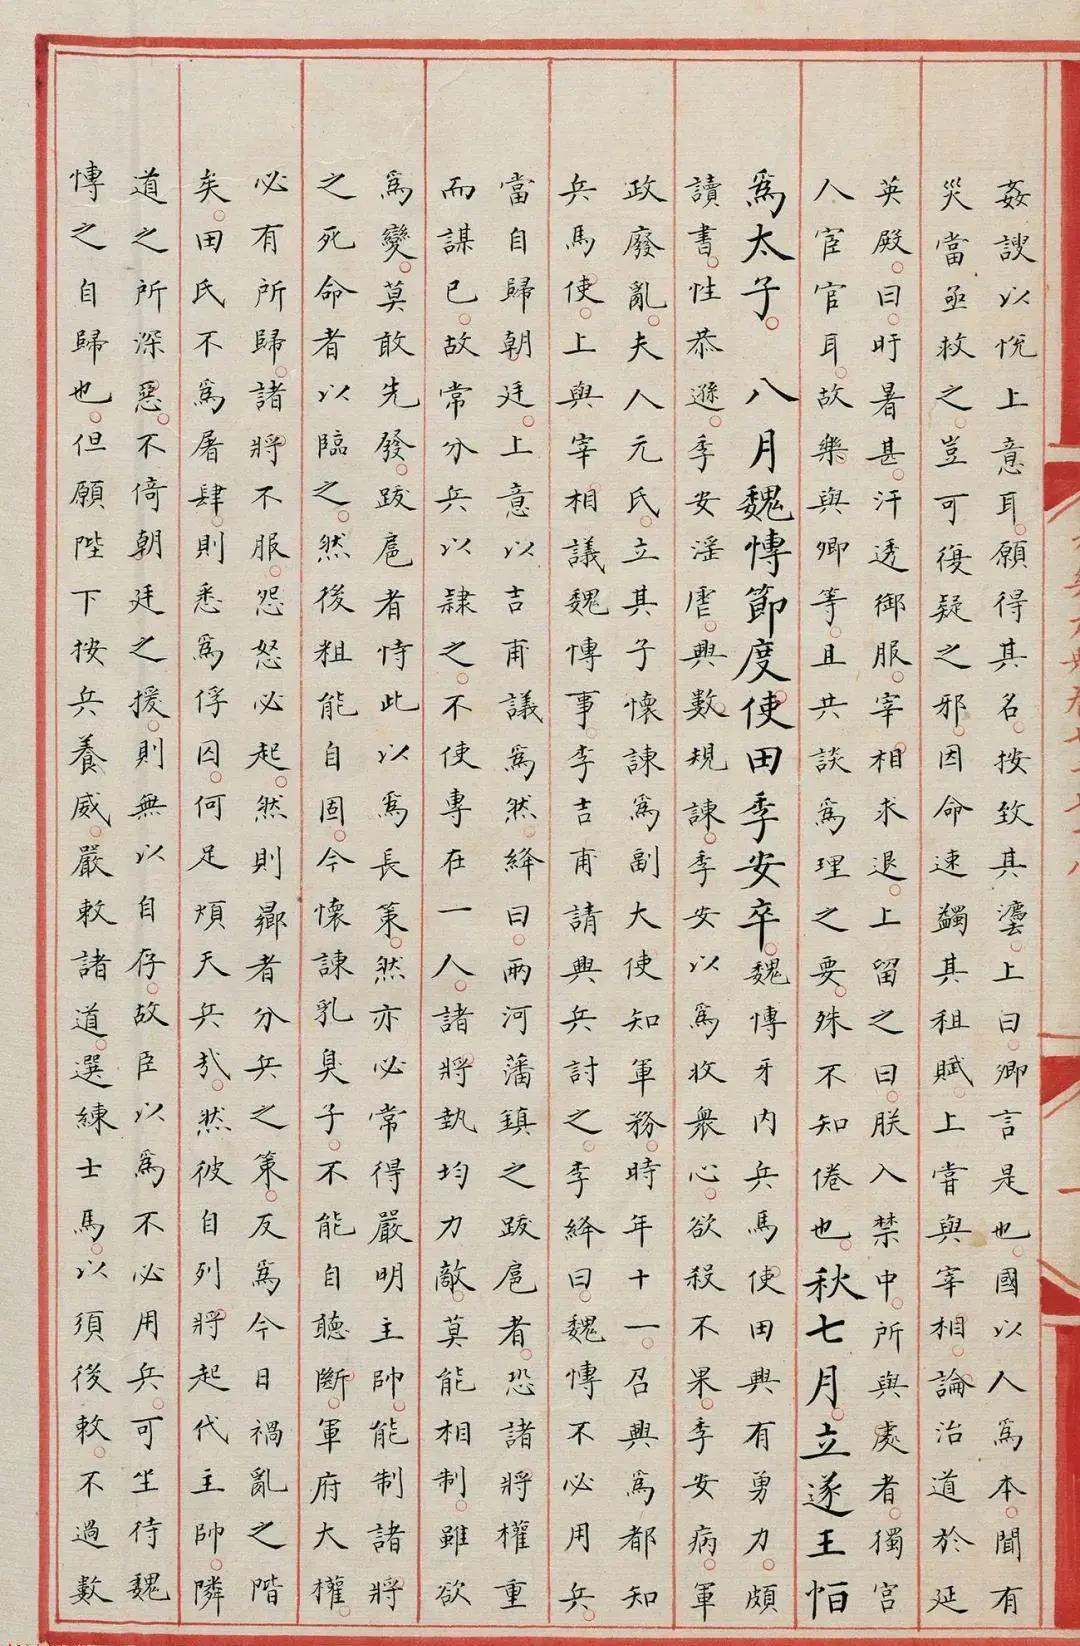 姦諛以悅上意耳。願得其名。按致其灋。上曰。卿言是也。國以人爲本。聞有
災當亟救之。豈可復疑之邪。因命速蠲其租賦。上嘗與宰相。論治道於延
英殿。日旰暑甚。汗透御服。宰相求退。上留之曰。朕入禁中。所與處者。獨宮
人宦官耳。故樂與卿等。且共談爲理之要。殊不知倦也。秋七月。立遂王恒
爲太子。八月魏博節度使田季安卒。魏博牙內兵馬使田興有勇力。頗
讀書。性恭遜。季安淫虐。興數規諫。季安以爲收衆心。欲殺不果。季安病。軍
政廢亂。夫人元氏。立其子懷諫爲副大使知軍務。時年十一。召興爲都知
兵馬使。上與宰相議魏博事。李吉甫請興兵討之。李絳曰。魏博不必用兵。
當自歸朝廷。上意以吉甫議爲然。絳曰。兩河藩鎮之跋扈者。恐諸將權重
而謀已。故常分兵以隸之。不使專在一人。諸將執均力敵。莫能相制。雖欲
爲變。莫敢先發。跋扈者恃此以爲長策。然亦必常得嚴明主帥。能制諸將
之死命者以臨之。然後粗能自固。今懷諫乳臭子。不能自聽斷。軍府大權。
必有所歸。諸將不服。怨怒必起。然則曏者分兵之策。反爲今日禍亂之階
矣。田氏不爲屠肆。則悉爲俘囚。何足煩天兵哉。然彼自列將起代主帥。隣
道之所深惡。不倚朝廷之援。則無以自存。故臣以爲不必用兵。可坐待魏
博之自歸也。但願陛下按兵養威。嚴敕諸道。選練士馬。以須後敕。不過數